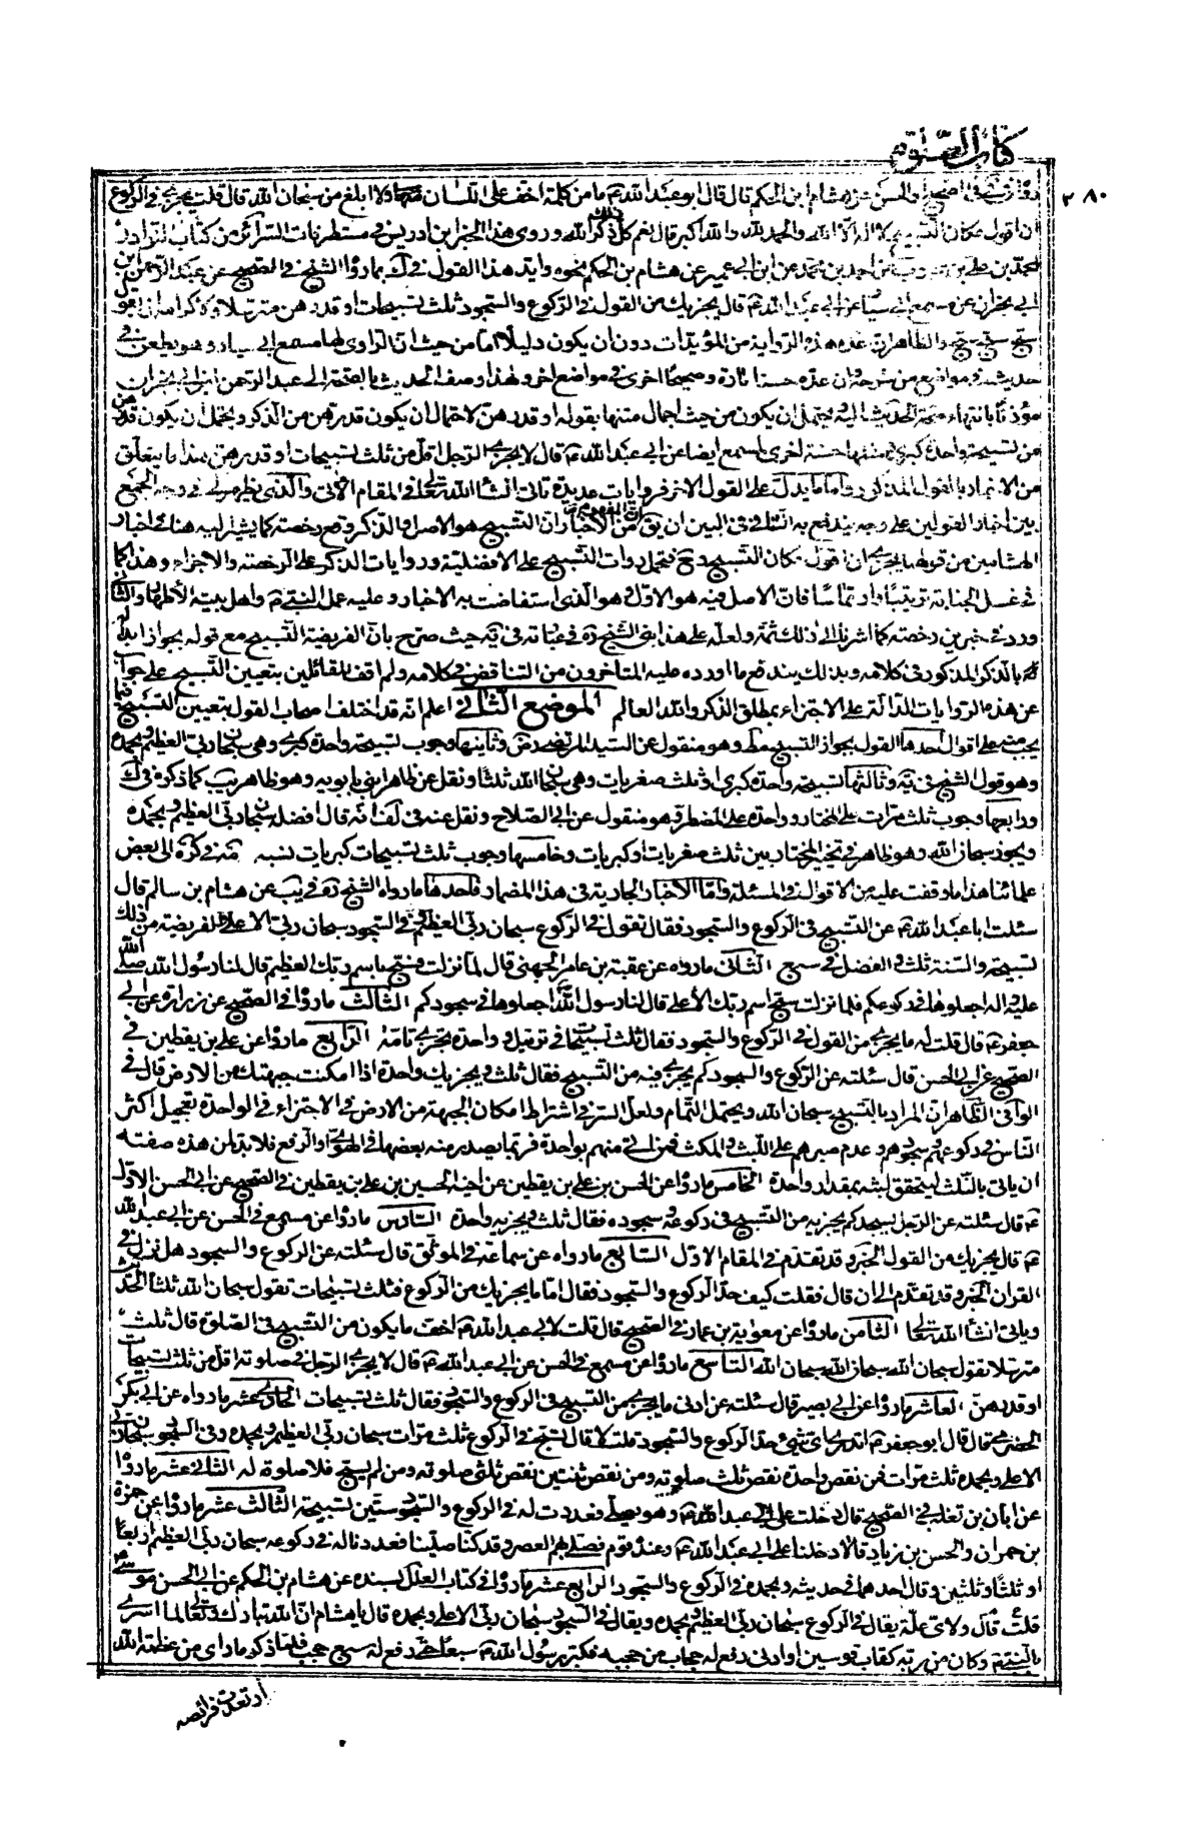 كتاب الصلوة
٢٨٠
هشام ابن الحكم قال قال ابو عبد الله ع ما من كلمة اخف على اللسان منها ولا ابلغ من سبحان الله قال قلت يجزى فى الركوع
ان اقول مكان التسبيح لا اله الا الله والحمد لله والله اكبر قال نعم كل ذلك ذكر الله وروى هذا الخبر ابن ادريس فى مستطرفات السرائر من كتاب النوادر
لمحمد بن على بن محبوب عن احمد بن محمد عن ابن ابى عمير عن هشام بن الحكم نحوه وايد هذا القول فى ك بما رواه الشيخ فى الصحيح عن عبد الرحمن بن
ابى نجران عن مسمع ابى سيار عن ابى عبد الله ع قال يجزيك من القول فى الركوع والسجود ثلث تسبيحات او قدرهن مترسلا وليس له ولا كرامة ان يقول
سبح سبح سبح والظاهر ان عده هذه الرواية من المؤيدات دون ان يكون دليلا اما من حيث ان الراوى لها مسمع ابى سيار وهو يطعن فى
حديثه فى مواضع من شرحه وان عده حسنا تارة وصحيحا اخرى فى مواضع اخر ولهذا وصف الحديث بالصحة الى عبد الرحمن ابن ابى نجران
مؤذنا بانتهاء صحة الحديث اليه ويحتمل ان يكون من حيث اجمال متنها بقوله او قدرهن لاحتمال ان يكون قدرهن من الذكر ويحتمل ان يكون قدرهن
من تسبيحة واحدة كبرى ومثلها حسنة اخرى لمسمع ايضا عن ابى عبد الله ع قال لا يجزى الرجل اقل من ثلث تسبيحات او قدرهن هذا ما يتعلق
من الاخبار بالقول المذكور واما ما يدل على القول الاخر فروايات عديدة تاتى انشاء الله تعالى فى المقام الاتى والذى يظهر لى فى وجه الجمع
بين اخبار القولين على وجه يندفع به التنافى فى البين ان يق ان المفهوم من الاخبار ان التسبيح هو الاصل والذكر وقع رخصة كما يشير اليه هنا فى اخبار
الهشامين من قولهما يجزى ان اقول مكان التسبيح وح فتحمل روايات التسبيح على الافضلية وروايات الذكر على الرخصة والاجزاء وهذا كما
فى غسل الجنابة ترتيبا وارتماسا فان الاصل فيه هو الاول وهو الذى استفاضت به الاخبار وعليه عمل النبى ص واهل بيته الاطهار والثانى
ورد فى خبرين رخصة كما اشرنا الى ذلك ثمة ولعله على هذا بنى الشيخ ره فى عبارته فى يه حيث صرح بان الفريضة التسبيح مع قوله بجواز ابداله
له بالذكر المذكور فى كلامه وبذلك يندفع ما اورده عليه المتاخرون من التناقض فى كلامه ولم اقف للقائلين بتعيين التسبيح على جواب
عن هذه الروايات الدالة على الاجتزاء بمطلق الذكر والله العالم الموضع الثانى اعلم انه قد اختلف اصحاب القول بتعيين التسبيح فيما
يجب منه على اقوال احدها القول بجواز التسبيح مط وهو منقول عن السيد المرتضى رض وثانيها وجوب تسبيحة واحدة كبرى وهى سبحان ربى العظيم وبحمده
وهو قول الشيخ فى يه وثالثها تسبيحة واحدة كبرى او ثلث صغريات وهى سبحان الله ثلثا ونقل عن ظاهر ابنى بابويه وهو ظاهر يب كما ذكره فى ك
ورابعها وجوب ثلث مرات على المختار وواحدة على المضطر وهو منقول عن ابى الصلاح ونقل عنه فى لف انه قال افضله سبحان ربى العظيم وبحمده
ويجوز سبحان الله وهو ظاهر فى تخير المختار بين ثلث صغريات او كبريات وخامسها وجوب ثلث تسبيحات كبريات نسبه فى كره الى بعض
علمائنا هذا ما وقفت عليه من الاقوال فى المسئلة واما الاخبار الجارية فى هذا المضمار فاحدها ما رواه الشيخ ره فى يب عن هشام بن سالم قال
سئلت ابا عبد الله ع عن التسبيح فى الركوع والسجود فقال تقول فى الركوع سبحان ربى العظيم وفى السجود سبحان ربى الاعلى الفريضة من ذلك
تسبيحة والسنة ثلث والفضل فى سبع الثانى ما رواه عن عقبة بن عامر الجهنى قال لما نزلت فسبح باسم ربك العظيم قال لنا رسول الله صلى الله
عليه واله اجعلوها فى ركوعكم فلما نزلت سبح اسم ربك الأعلى قال لنا رسول الله اجعلوها فى سجودكم الثالث ما رواه فى الصحيح عن زرارة عن ابى
جعفر ع قال قلت له ما يجزى من القول فى الركوع والسجود فقال ثلث تسبيحات فى ترسل وواحدة تجزى تامة الرابع ما رواه عن على بن يقطين فى
الصحيح عن ابى الحسن قال سئلته عن الركوع والسجود كم يجزى فيه من التسبيح فقال ثلث ويجزيك واحدة اذا امكنت جبهتك من الارض قال فى
الوافى الظاهر ان المراد بالتسبيح سبحان الله ويحتمل التمام ولعل السر فى اشتراط امكان الجبهة من الارض فى الاجتزاء فى الواحدة تعجيل اكثر
الناس فى ركوعهم وسجودهم وعدم صبرهم على اللبث والمكث فمن اتى منهم بواحدة فربما يصدر منه بعضها فى الهوى او الرفع فلا بد لمن هذه صفته
ان ياتى بالثلث ليتحقق لبثه بمقدار واحدة الخامس ما رواه عن الحسن بن على بن يقطين عن اخيه الحسين بن على بن يقطين فى الصحيح عن ابى الحسن الاول
ع قال سئلته عن الرجل يسجد كم يجزيه من التسبيح فى ركوعه وسجوده فقال ثلث ويجزيه واحدة السادس ما رواه عن مسمع فى الحسن عن ابى عبد الله
ع قال يجزيك من القول الخبر وقد تقدم فى المقام الاول السابع ما رواه عن سماعة فى الموثق قال سئلته عن الركوع والسجود هل نزل فى
القران الخبر وقد تقدم الى ان قال فقلت كيف حد الركوع والسجود فقال اما ما يجزيك من الركوع فثلث تسبيحات تقول سبحان الله ثلثا الحديث
وياتى انشاء الله تعالى الثامن ما رواه عن معوية بن عمار فى الصحيح قال قلت لابى عبد الله ع اخف ما يكون من التسبيح فى الصلوة قال ثلث تسبيحات
مترسلا تقول سبحان الله سبحان الله سبحان الله التاسع ما رواه عن مسمع فى الحسن عن ابى عبد الله ع قال لا يجزى الرجل فى صلوته اقل من ثلث تسبيحات
او قدرهن العاشر ما رواه عن ابى بصير قال سئلته عن ادنى ما يجزى من التسبيح فى الركوع والسجود فقال ثلث تسبيحات الحادى عشر ما رواه عن ابى بكر
الحضرمى قال قال ابو جعفر ع اتدرى اى شئ حد الركوع والسجود قلت لا قال تسبح فى الركوع ثلث مرات سبحان ربى العظيم وبحمده وفى السجود سبحان ربى
الاعلى وبحمده ثلث مرات فمن نقص واحدة نقص ثلث صلوته ومن نقص ثنتين نقص ثلثى صلوته ومن لم يسبح فلا صلوة له الثانى عشر ما رواه
عن ابان بن تغلب فى الصحيح قال دخلت على ابى عبد الله ع وهو يصلى فعددت له فى الركوع والسجود ستين تسبيحة الثالث عشر ما رواه عن حمزة
بن حمران والحسن بن زياد قالا دخلنا على ابى عبد الله ع وعنده قوم فصلى بهم العصر وقد كنا صلينا فعددنا له فى ركوعه سبحان ربى العظيم اربعا
او ثلثا وثلثين وقال احدهما فى حديثه وبحمده فى الركوع والسجود الرابع عشر ما رواه فى كتاب العلل بسنده عن هشام بن الحكم عن ابى الحسن موسى ع
قلت قال ولاى علة يقال فى الركوع سبحان ربى العظيم وبحمده ويقال فى السجود سبحان ربى الاعلى وبحمده قال يا هشام ان الله تبارك وتعالى لما اسرى
بالنبى ص وكان من ربه كقاب قوسين او ادنى رفع له حجاب من حجبه فكبر رسول الله ص سبعا حتى رفع له سبع حجب فلما ذكر ما راى من عظمة الله
ارتعدت فرائصه